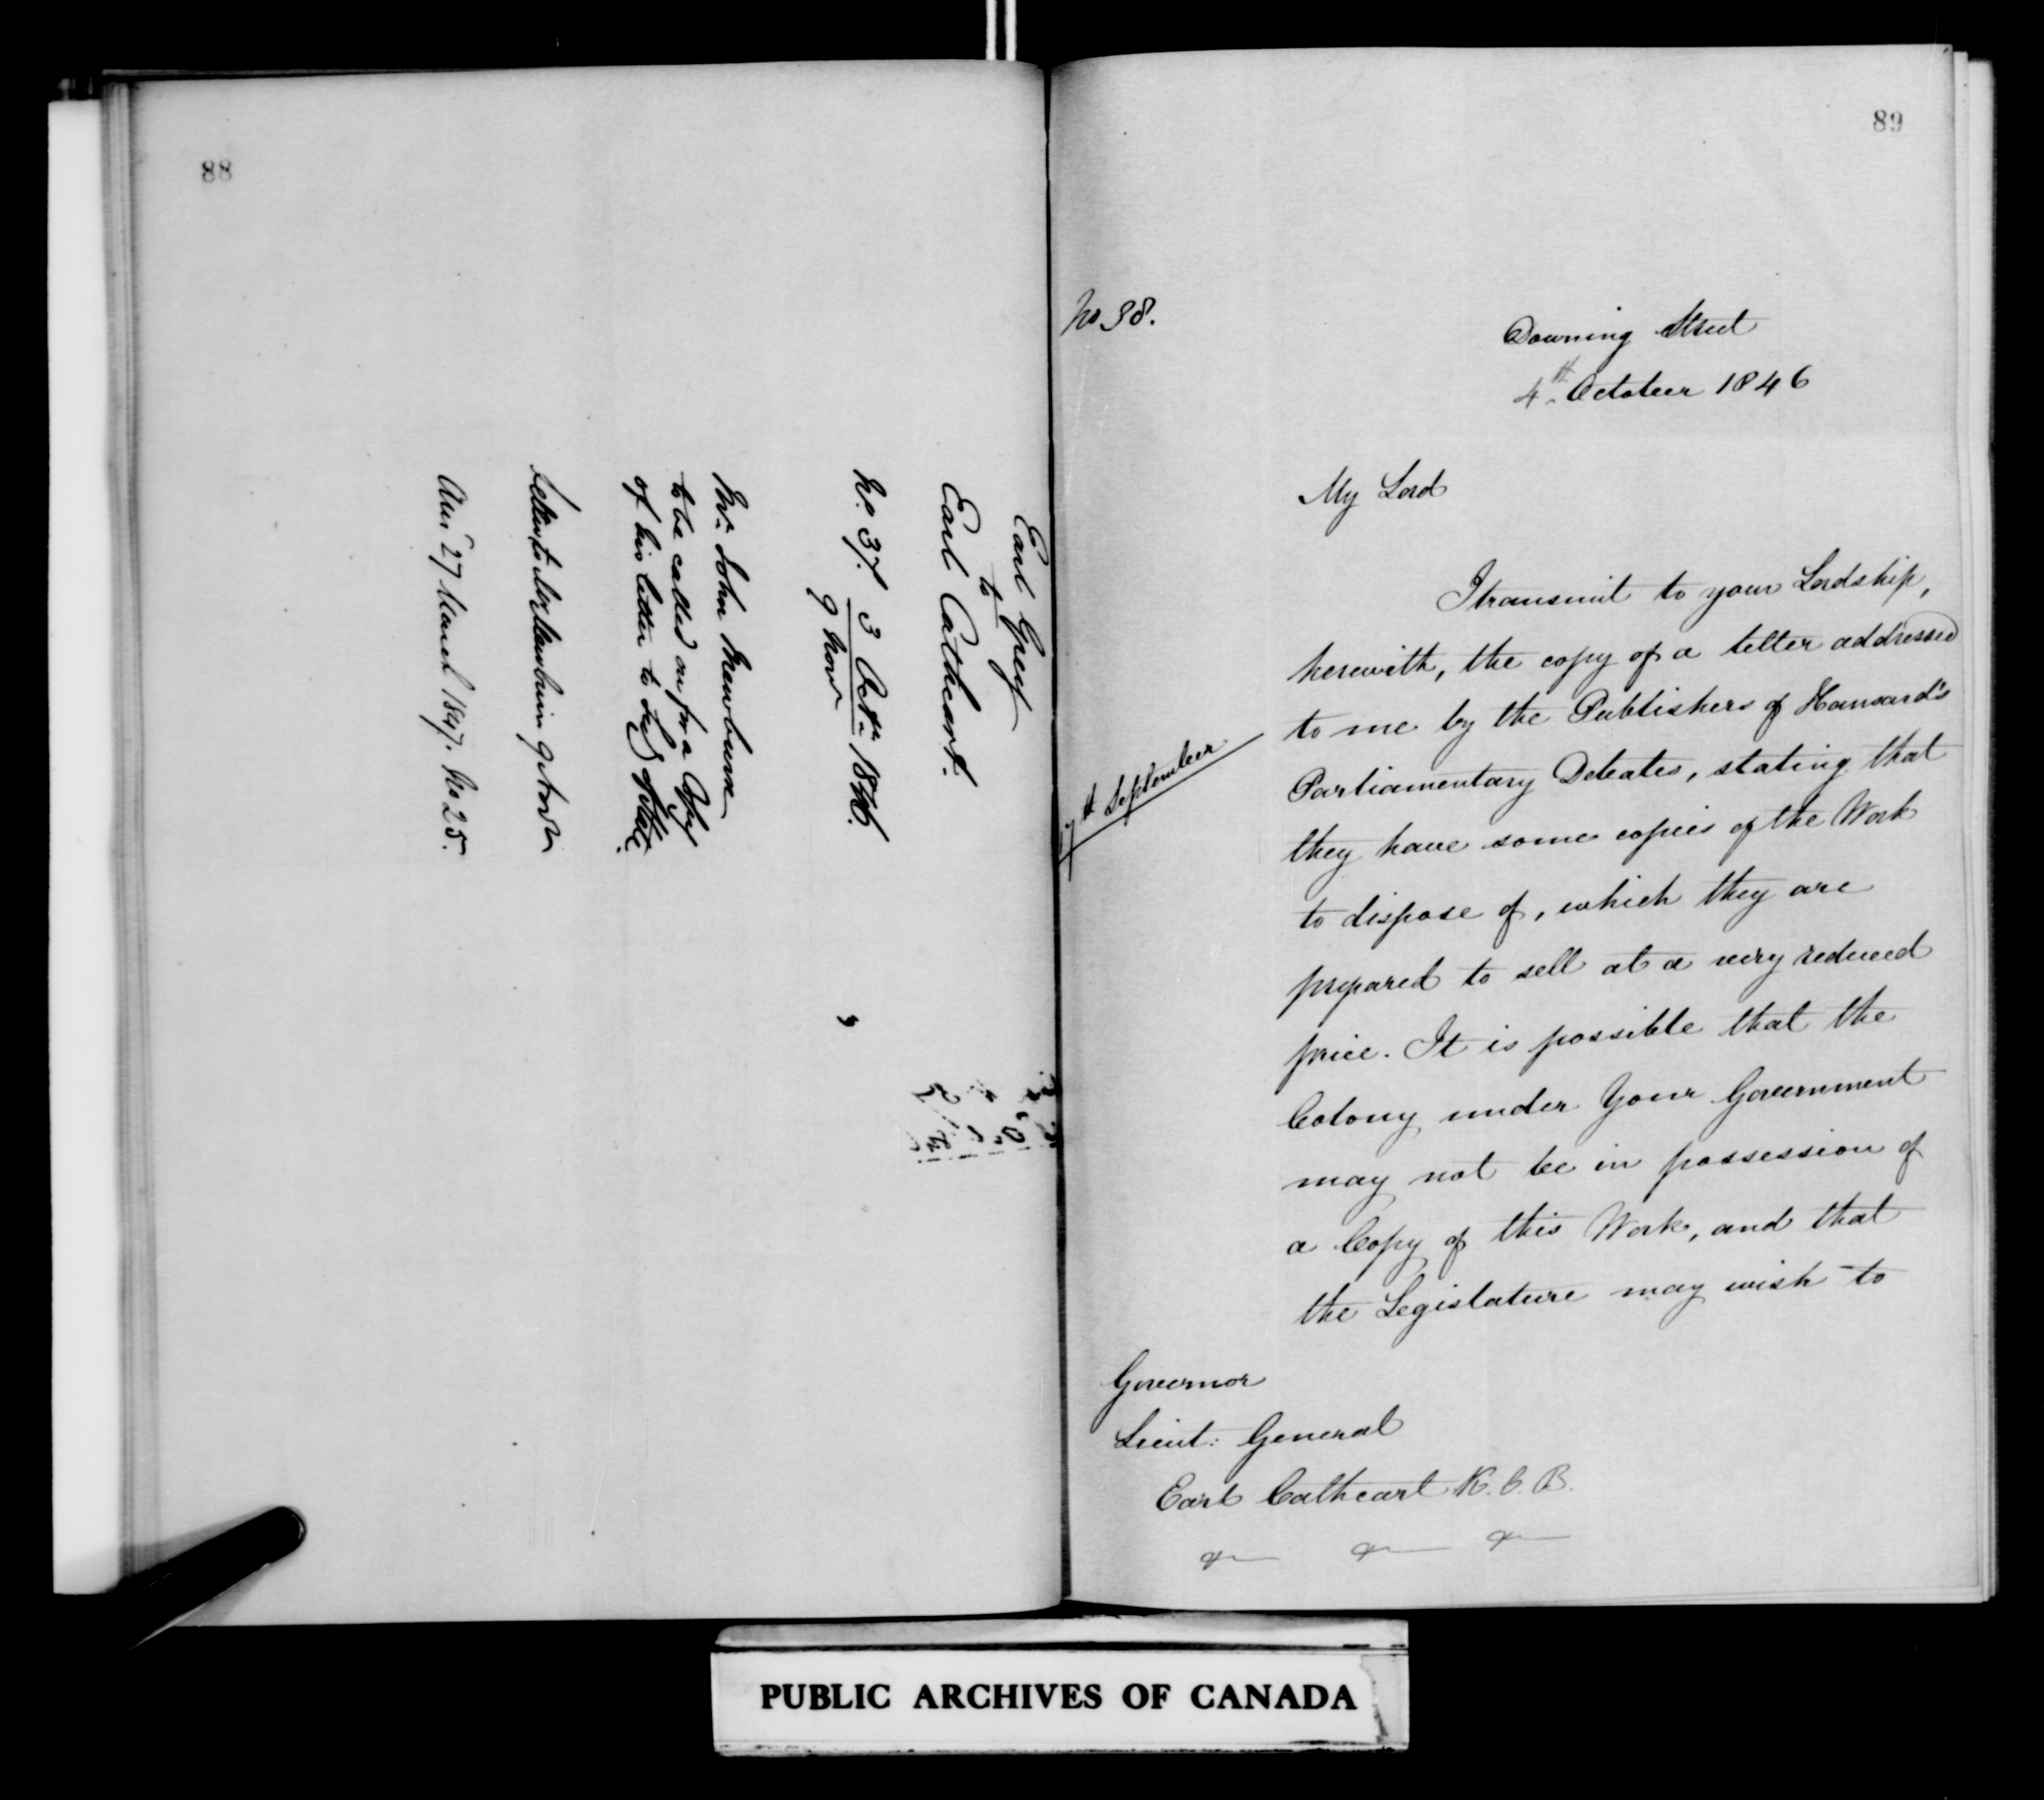 88
Earl Grey
to
Earl Cathcart.
No. 37. 3 Octr. 1846.
9 Novr
Mr. John Mewburn
to be called on for a Copy
of his letter to Secy of State.
Letter to Mr Mewburn 9 Novr
Ansd 27 March 1847. No 25.
89
No 38.
Downing Street
4th October 1846
My Lord
I transmit to your Lordship,
herewith, the copy of a letter addressed
to me by the Publishers of Hansard's
7th September
Parliamentary Debates, stating that
they have some copies of the Work
to dispose of, which they are
prepared to sell at a very reduced
price. It is possible that the
Colony under Your Government
may not be in possession of
a Copy of this Work, and that
the Legislature may wish to
Governor
Lieut: General
Earl Cathcart K.C.B.
&— &— &—
PUBLIC ARCHIVES OF CANADA